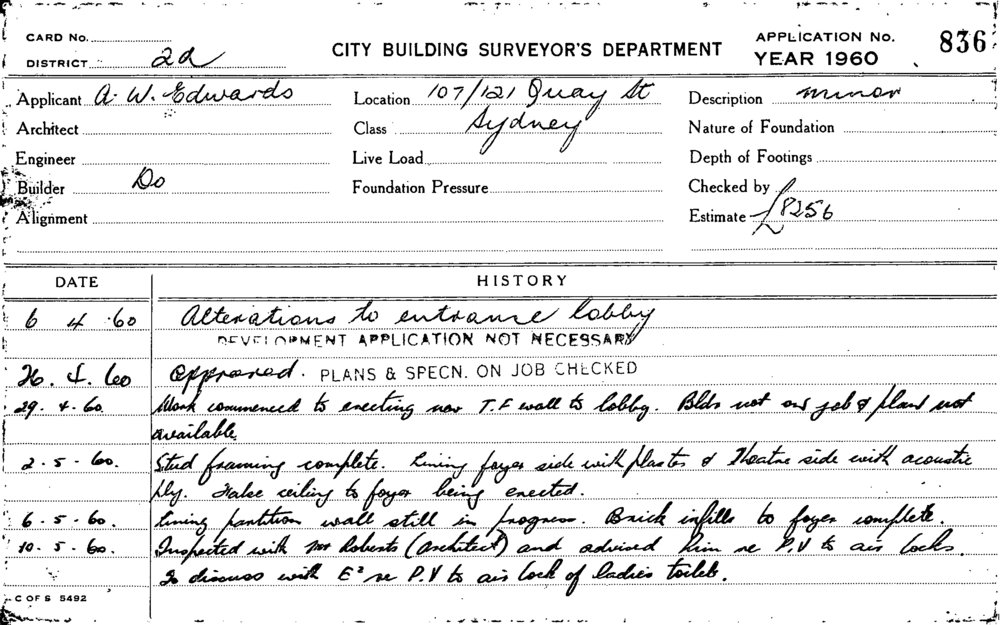 CARD No.
DISTRICT 2a
CITY BUILDING SURVEYOR'S DEPARTMENT
APPLICATION No. 836
YEAR 1960
Applicant A. W. Edwards
Architect
Engineer
Builder Do
Alignment
Location 107/121 Quay St
Class Sydney
Live Load
Foundation Pressure
Description minor
Nature of Foundation
Depth of Footings
Checked by
Estimate £8256
DATE HISTORY
6 4 60 Alterations to entrance lobby
DEVELOPMENT APPLICATION NOT NECESSARY
26. 4. 60 Approved. PLANS & SPECN. ON JOB CHECKED
29. 4. 60. Work commenced to erecting new T.F wall to lobby. Bldr not on job & plans not
available.
2. 5. 60. Stud framing complete. Lining foyer side with plaster & Theatre side with acoustic
ply. False ceiling to foyer being erected.
6. 5. 60. Lining partition wall still in progress. Brick infills to foyer complete.
10. 5. 60. Inspected with Mr Roberts (architect) and advised him re P.V to air locks.
To discuss with re P.V to air lock of ladies toilets.
C OF S 5492